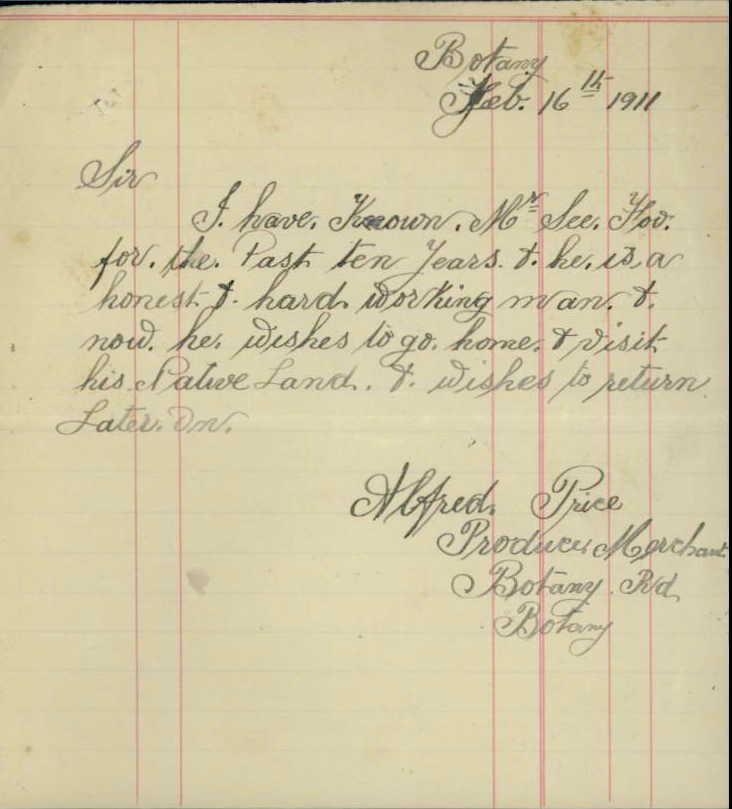 Botany
Feb. 16th 1911
Sir
I. have. Known. Mr See. Hov.
for. the. Past ten Years. &. he. is a
honest &. hard working man. &.
now. he. wishes to go. home. & visit
his Native Land. &. wishes to return.
Later. On.
Alfred. Price
Produce Merchant
Botany. Rd
Botany